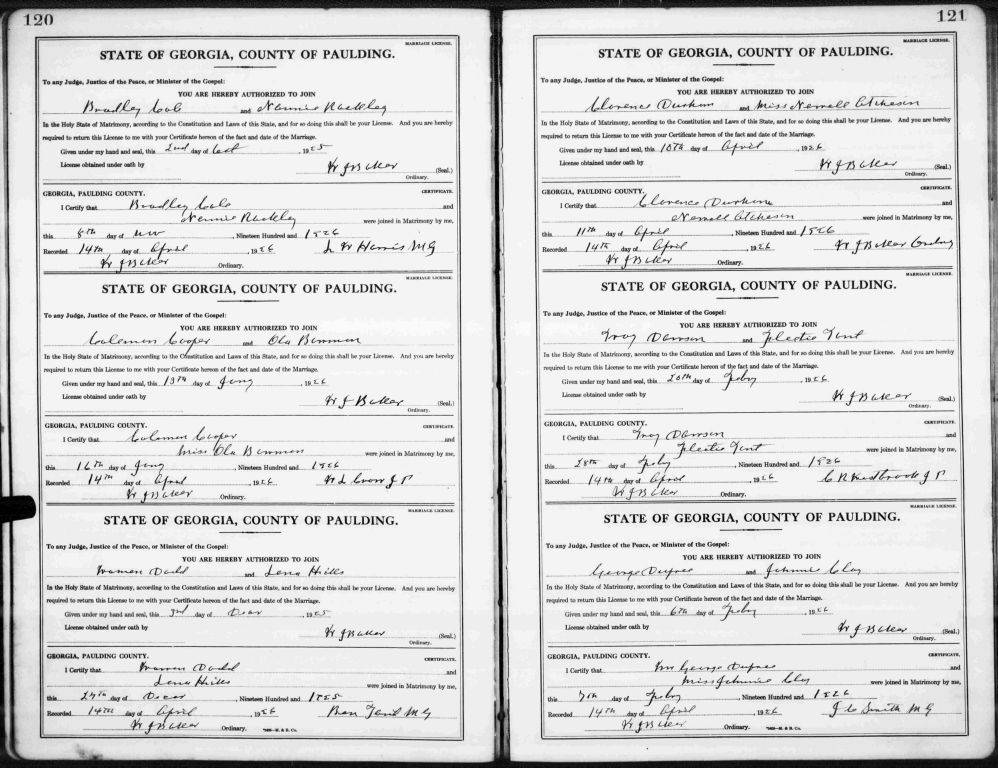 120
MARRIAGE LICENSE.
STATE OF GEORGIA, COUNTY OF PAULDING.
To any Judge, Justice of the Peace, or Minister of the Gospel:
YOU ARE HEREBY AUTHORIZED TO JOIN
Bradley Cole and Nannie Rackley
In the Holy State of Matrimony, according to the Constitution and Laws of this State, and for so doing this shall be your License. And you are hereby
required to return this License to me with your Certificate hereon of the fact and date of the Marriage.
Given under my hand and seal, this 2nd day of Oct , 1925
License obtained under oath by
W J Baker (Seal.)
Ordinary.
GEORGIA, PAULDING COUNTY. CERTIFICATE.
I Certify that Bradley Cole and
Nannie Rackley were joined in Matrimony by me,
this 8th day of Nov , Nineteen Hundred and 1926
Recorded 14th day of April , 1926 Harris M G
W J Baker Ordinary.
MARRIAGE LICENSE.
STATE OF GEORGIA, COUNTY OF PAULDING.
To any Judge, Justice of the Peace, or Minister of the Gospel:
YOU ARE HEREBY AUTHORIZED TO JOIN
Coleman Cooper and Ola Bowman
In the Holy State of Matrimony, according to the Constitution and Laws of this State, and for so doing this shall be your License. And you are hereby
required to return this License to me with your Certificate hereon of the fact and date of the Marriage.
Given under my hand and seal, this 13th day of Jany , 1926
License obtained under oath by
W J Baker (Seal.)
Ordinary.
GEORGIA, PAULDING COUNTY. CERTIFICATE.
I Certify that Coleman Cooper and
Miss Ola Bowman were joined in Matrimony by me,
this 16th day of Jany , Nineteen Hundred and 1926
Recorded 14th day of April , 1926 Crow J P
W J Baker Ordinary.
MARRIAGE LICENSE.
STATE OF GEORGIA, COUNTY OF PAULDING.
To any Judge, Justice of the Peace, or Minister of the Gospel:
YOU ARE HEREBY AUTHORIZED TO JOIN
Warren Dodd and Lena Hicks
In the Holy State of Matrimony, according to the Constitution and Laws of this State, and for so doing this shall be your License. And you are hereby
required to return this License to me with your Certificate hereon of the fact and date of the Marriage.
Given under my hand and seal, this 3rd day of , 1925
License obtained under oath by
W J Baker (Seal.)
Ordinary.
GEORGIA, PAULDING COUNTY. CERTIFICATE.
I Certify that Warren Dodd and
Lena Hicks were joined in Matrimony by me,
this 27th day of , Nineteen Hundred and 1925
Recorded 14th day of April , 1926 M G
W J Baker Ordinary.
121
MARRIAGE LICENSE.
STATE OF GEORGIA, COUNTY OF PAULDING.
To any Judge, Justice of the Peace, or Minister of the Gospel:
YOU ARE HEREBY AUTHORIZED TO JOIN
Clorence Durham and Miss Nerrell Atcheson
In the Holy State of Matrimony, according to the Constitution and Laws of this State, and for so doing this shall be your License. And you are hereby
required to return this License to me with your Certificate hereon of the fact and date of the Marriage.
Given under my hand and seal, this 10th day of April , 1926
License obtained under oath by
W J Baker (Seal.)
Ordinary.
GEORGIA, PAULDING COUNTY. CERTIFICATE.
I Certify that Clorence Durham and
Nerrell Atcheson were joined in Matrimony by me,
this 11th day of April , Nineteen Hundred and 1926
Recorded 14th day of April , 1926 W J Baker Ordinary
W J Baker Ordinary.
MARRIAGE LICENSE.
STATE OF GEORGIA, COUNTY OF PAULDING.
To any Judge, Justice of the Peace, or Minister of the Gospel:
YOU ARE HEREBY AUTHORIZED TO JOIN
Troy Dawson and
In the Holy State of Matrimony, according to the Constitution and Laws of this State, and for so doing this shall be your License. And you are hereby
required to return this License to me with your Certificate hereon of the fact and date of the Marriage.
Given under my hand and seal, this 20th day of Feby , 1926
License obtained under oath by
W J Baker (Seal.)
Ordinary.
GEORGIA, PAULDING COUNTY. CERTIFICATE.
I Certify that Troy Dawson and
were joined in Matrimony by me,
this 28th day of Feby , Nineteen Hundred and 1926
Recorded 14th day of April , 1926 J P
W J Baker Ordinary.
MARRIAGE LICENSE.
STATE OF GEORGIA, COUNTY OF PAULDING.
To any Judge, Justice of the Peace, or Minister of the Gospel:
YOU ARE HEREBY AUTHORIZED TO JOIN
George Dupree and Johnnie Clay
In the Holy State of Matrimony, according to the Constitution and Laws of this State, and for so doing this shall be your License. And you are hereby
required to return this License to me with your Certificate hereon of the fact and date of the Marriage.
Given under my hand and seal, this 6th day of Feby , 1926
License obtained under oath by
W J Baker (Seal.)
Ordinary.
GEORGIA, PAULDING COUNTY. CERTIFICATE.
I Certify that Mr George Dupree and
Miss Johnnie Clay were joined in Matrimony by me,
this 7th day of Feby , Nineteen Hundred and 1926
Recorded 14th day of April , 1926 J C Smith M G
W J Baker Ordinary.